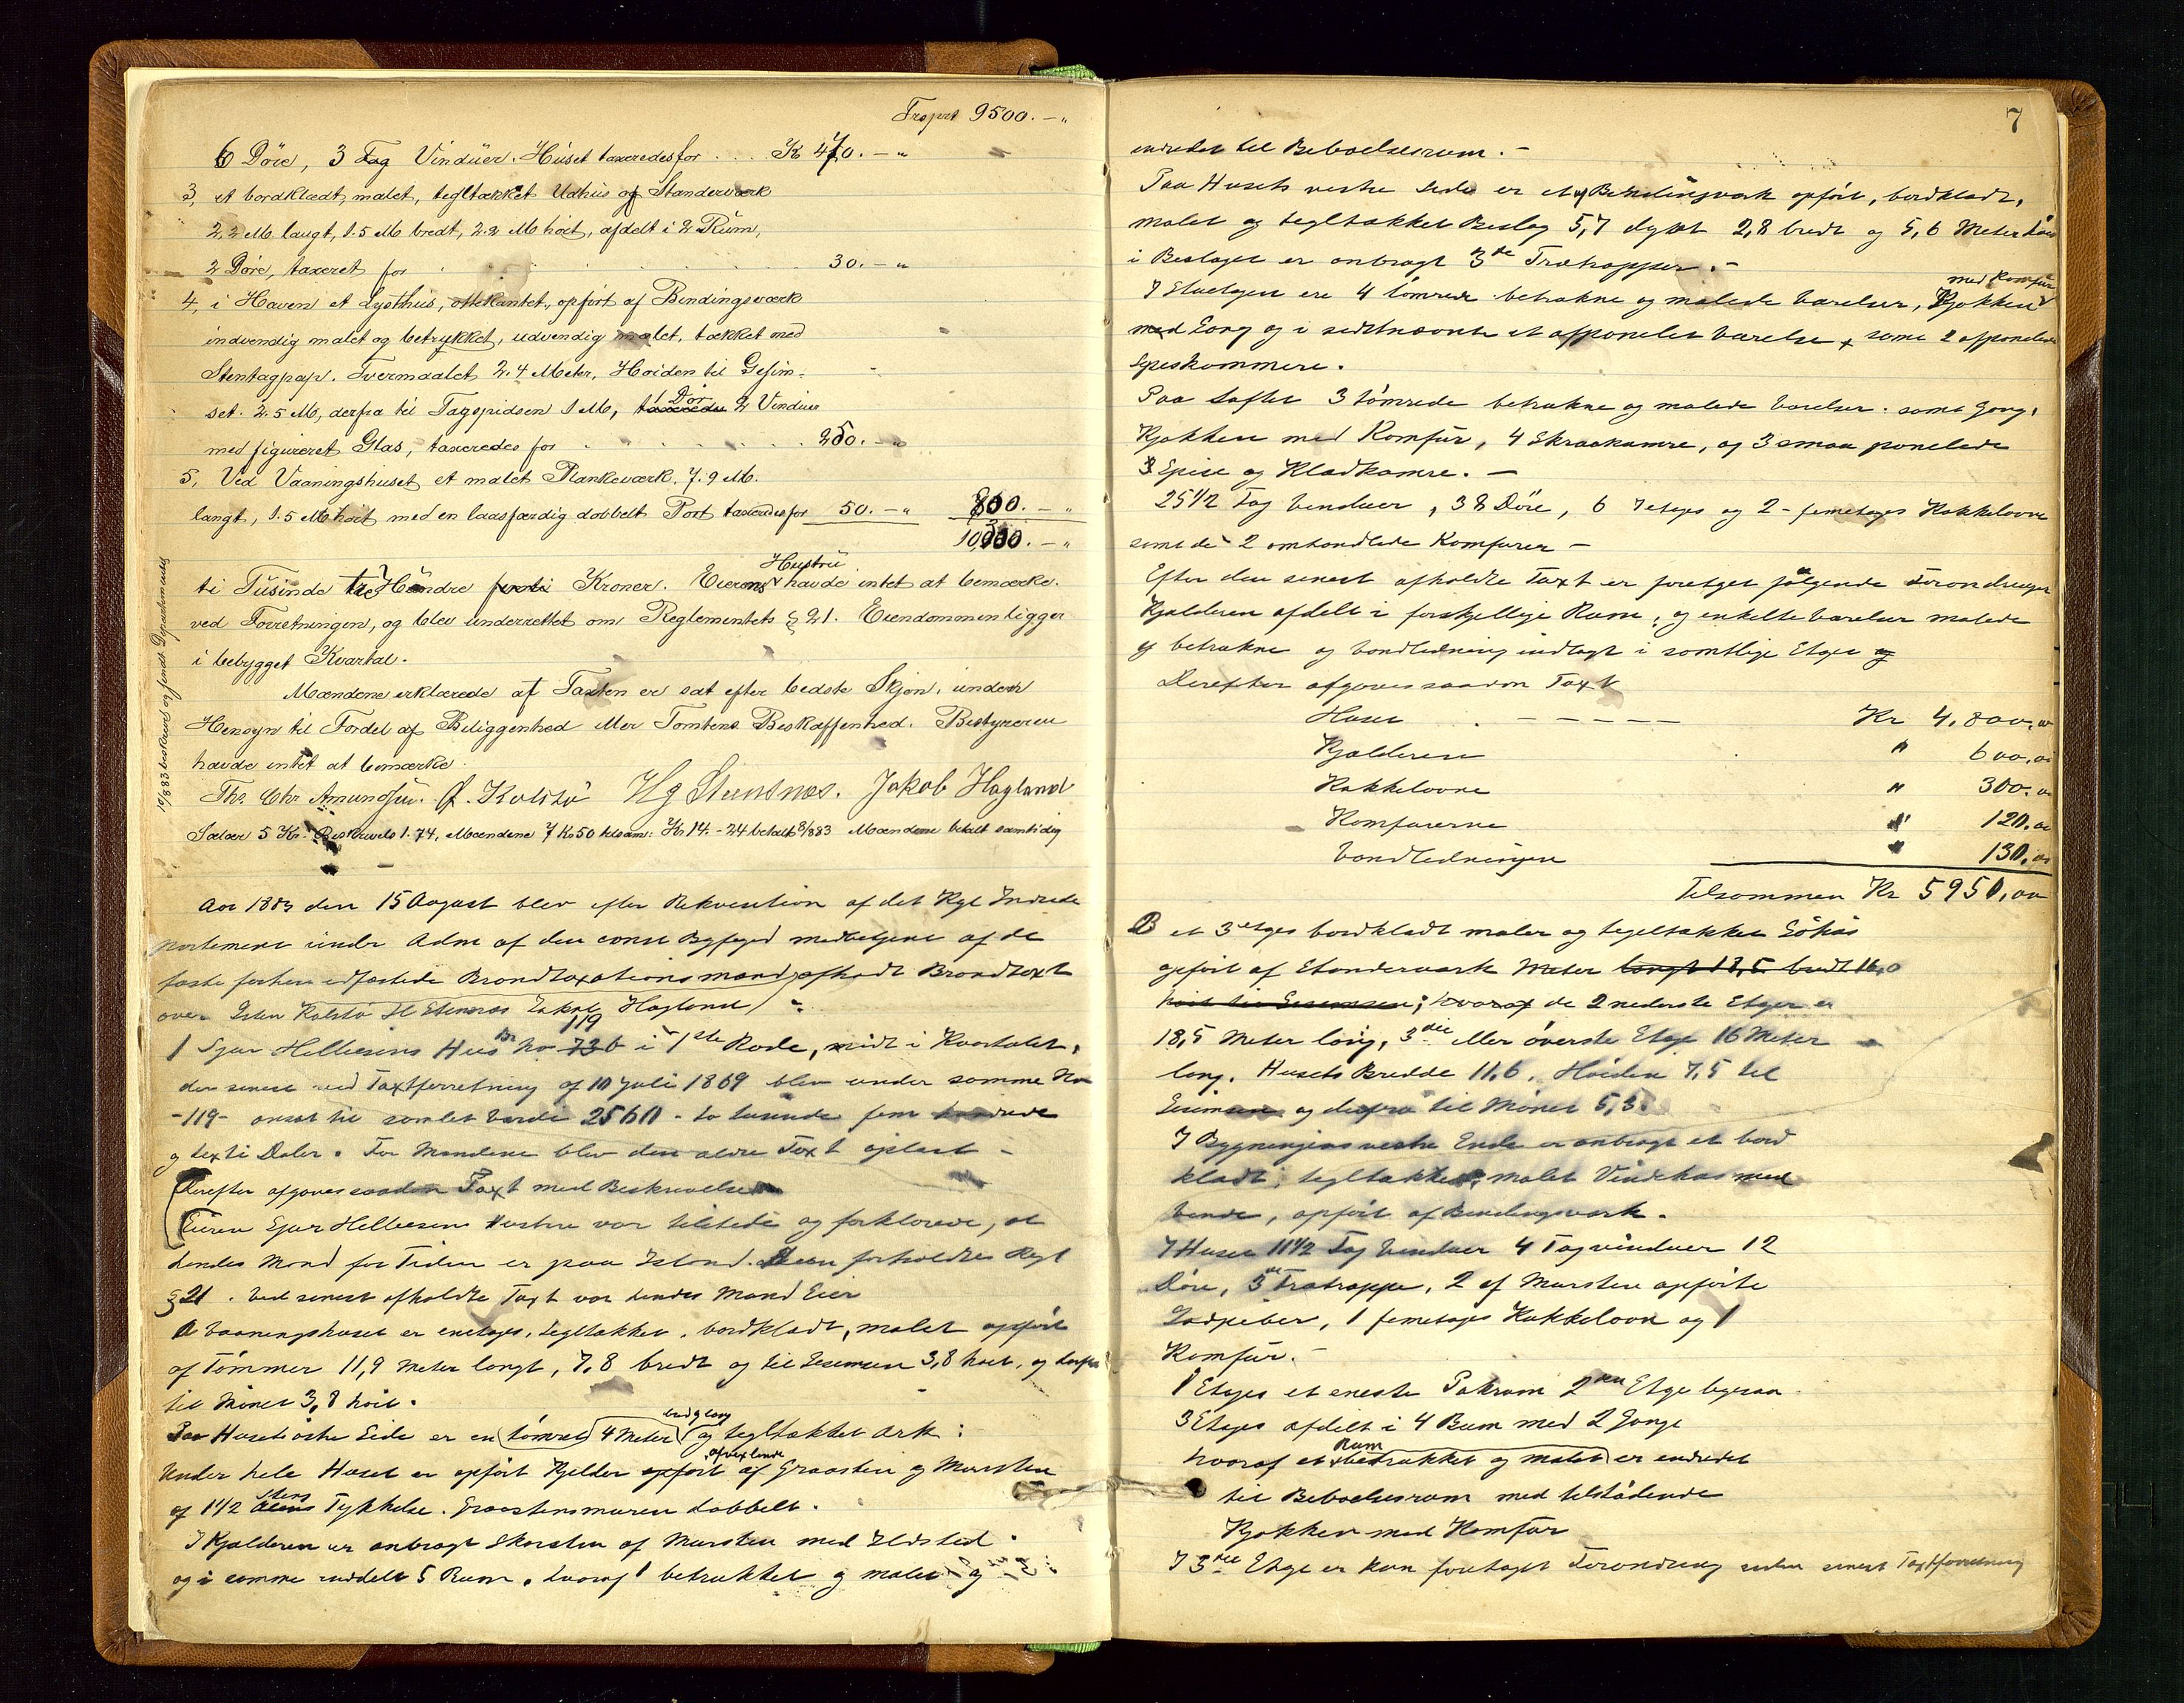 Trsprt 9500. — „
6 Döre, 3 Fag Vinduer. Huset taxeredes for . . . . Kr 470. — „
3, et bordklædt, malet, tegltækket Udhus af Standerværk
2,2 M. langt, 1.5 M bredt, 2.2 M høit, afdelt i 2 Rum,
2 Döre, taxeret for 30. — „
4, i Haven et Lysthus, ottekantet, opført af Bindingsværk
indvendig malet og betrykket, udvendig malet, tækket med
Stentagpap. Tvermaalet 2.4 Meter, Høiden til Gesim-
set. 2.5 M, derfra til Tagspidsen 1 M, taxeredes 1 Dör 2 Vinduer
med figureret Glas, taxeredes for 250. — „
5, Ved Vaaningshuset et malet Plankeværk, 7.9 M.
langt, 1.5 M høit med en laasfærdig dobbelt Port taxeredes for 50. — „ 800. — „
10300. — „
ti Tusinde tre Hundre Kroner. Eierens Hustru havde intet at bemærke
ved Forretningen, og blev underrettet om Reglementets § 21. Eiendommen ligger
i bebygget Kvartal.
Mændene erklærede at Taxten er sat efter bedste Skjøn, uden
Hensyn til Fordel af Beliggenhed eller Tomtens Beskaffenhed. Bestyreren
havde intet at bemærke.
Ths. Chr Amundsen. J. Kolstø Hg Steensnæs. Jakob Hagland
Salær 5 Kr. Beskrivels 1.74, Mændene 7 Kr 50 tilsam: Kr 14. - 24 betalt 8/8 83 Mændene betalt samtidig
10/8 83 beskrevs og sendt Departementet
Aar 1883 den 15 August blev efter Rekvisition af det Kgl Indrede
partement under Adm af den const Byfoged medbetjent af de
faste forhen edfæstede Brandtaxationsmænd, afholdt Brandtaxt
over Kolstø H Stensnæs Jakob Hagland
1 Sjur Hellesens Hus Br No 73 b 119 i 1ste Rode, midt i Kvartalet,
der senest ved Taxtforretning af 10 Juli 1869 blev under samme No
-119- ansat til samlet Værdi 2560 - to tusinde fem hundrede
og sexti Daler. For Mændene blev den ældre Taxt oplæst -
Derefter afgaves saadan Taxt med Beskrivelse
Eieren Sjur Hellesens Hustru var tilstede og forklarede, at
hendes Mand for Tiden er paa Island. Hun forholdtes Regl
§ 21. Ved senest afholdte Taxt var hendes Mand Eier
A Vaaningshuset er enetages, tegltækket, bordklædt, malet opført
af Tømmer 11,9 Meter langt, 7,8 bredt og til Gesimsen 3,8 høit, og derfra
til Mönet 3,8 høit.
Paa Husets østre Side er en tømret 4 Meter bred g lang og tegltækket Ark:
Under hele Huset er opført Kjelder opført afvexlende af Graasten og Mursten
af 1 1/2 Alens Stens Tykkelse. Graastensmuren dobbelt.
I Kjælderen er anbragt Skorsten af Mursten med Ildsted.
og i samme inddelt 5 Rum, hvoraf 1 betrukket og malet og
7
indredet til Beboelsesrum. —
Paa Husets vestre Side er et af Bindingsværk opført, bordklædt,
malet og tegltækket Beslag 5,7 dybt 2,8 bredt og 5,6 Meter høit
i Beslaget er anbragt 3de Trætrapper. —
I Stuetagen ere 4 tømrede betrukne og malede Værelser, Kjøkken med Komfur
med Gang og i sidstnævnte et afpanelet Værelse, samt 2 afpanelede
Spiskammere.
Paa Loftet 3 tømrede betrukne og malede Værelser. samt Gang,
Kjøkken med Komfur, 4 Skraakamre, og 3 smaa panelede
Spise og Klædkamre. —
25 1/2 Fag Vinduer, 38 Döre, 6 1 etages og 2 - femetages Kakkelovne
samt de 2 omhandlede Komfurer —
Efter den senest afholdte Taxt er foretaget følgende Forandringer
Kjælderen afdelt i forskjellige Rum, og enkelte Værelser malede
og betrukne og Vandledning indlagt i samtlige Etager og
Derefter afgaves saadan Taxt
Huset . — — — — — Kr 4,800,00
Kjælderen " 600,00
Kakkelovne " 300,00
Komfurerne " 120,00
Vandledningen " 130,00
Tilsammen Kr 5950,00
B et 3 etages bordklædt malet og tegltækket Søhus
opført af Standerværk Meter langt 18,5 bredt 16,0
høit til Gesimsen; hvoraf de 2 nederste Etager er
18,5 Meter lang, 3die eller øverste Etage 16 Meter
lang. Husets Bredde 11,6. Høiden 7,5 til
Gesimsen og derfra til Mönet 5,3.
I Bygningens vestre Ende er anbragt et bord
klædt, tegltækket, malet Vindehus med
Vinde, opført af Bindingsværk.
I Huset 11 1/2 Fag Vinduer 4 Tagvinduer 12
Döre, 3de Trætrappe, 2 af Mursten opførte
Ladpiber, 1 femetages Kakkelovn og 1
Komfur. —
1 Etages et eneste Pakrum 2den Etage ligesaa
3 Etages afdelt i 4 Rum med 2 Gange
hvoraf et Rum betrukket og malet er indredet
til Beboelsesrum med tilstødende
Kjøkken med Komfur
I 3die Etage er kun foretaget Forandring siden senest Taxtforretning